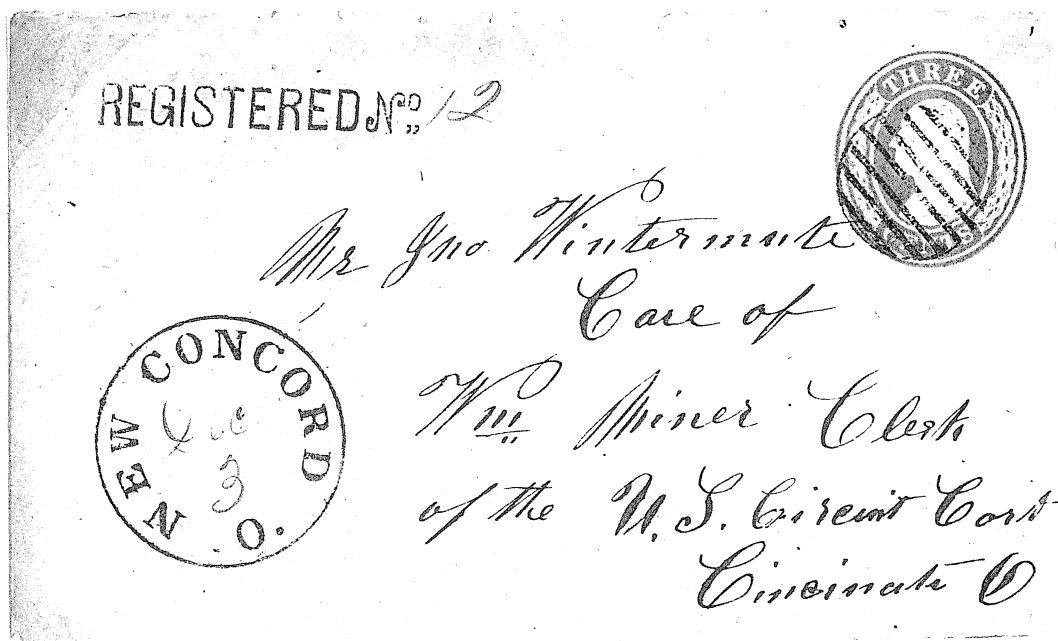 REGISTERED No. 12
THREE CENTS
Mr Jno. Wintermute
Care of
Wm Miner Clerk
of the U.S. Circuit Cort
Cincinate O
NEW CONCORD O.
Dec
3